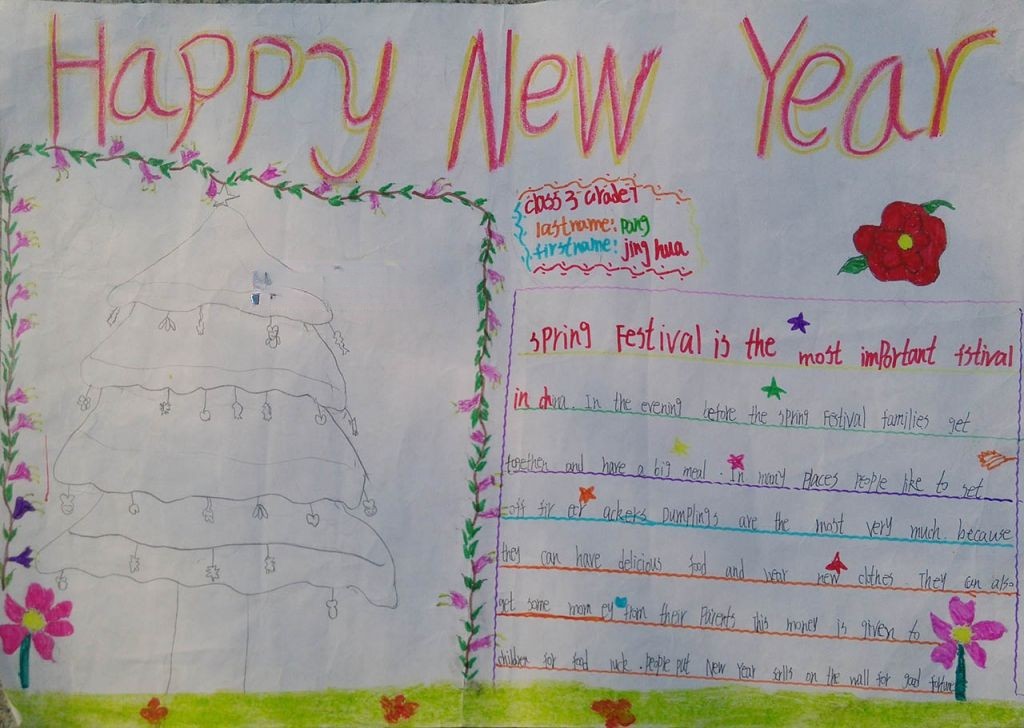 Happy New Year
class 3 Grade7
lastname: pang
firstname: jing hua
spring Festival is the most important fstival
in china. In the evening before the spring Festival families get
together and have a big meal. In many places people like to set
off fir ecr ackers Dumplings are the most very much because
they can have delicious food and wear new clothes. They can also
get some mom ey from their Parents This money is given to
children for food luck. People put New Year on the wall for good fortune